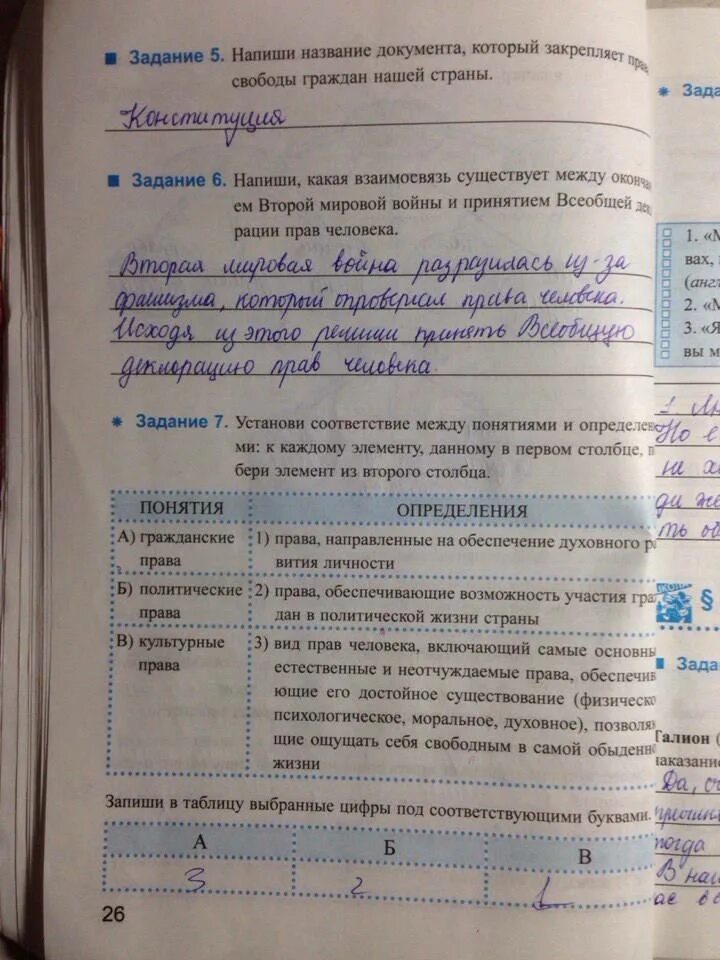 Задание 5. Напиши название документа, который закрепляет
свободы граждан нашей страны.
Конституция
Задание 6. Напиши, какая взаимосвязь существует между
ем Второй мировой войны и принятием Всеобщей
рации прав человека.
Вторая мировая война разразилась из-за
фашизма, который опровергал права человека.
Исходя из этого решили принять Всеобщую
декларацию прав человека.
Задание 7. Установи соответствие между понятиями и
ми: к каждому элементу, данному в первом столбце,
бери элемент из второго столбца.
ПОНЯТИЯ ОПРЕДЕЛЕНИЯ
А) гражданские права
1) права, направленные на обеспечение духовного
вития личности
Б) политические права
2) права, обеспечивающие возможность участия
дан в политической жизни страны
В) культурные права
3) вид прав человека, включающий самые
естественные и неотчуждаемые права,
ющие его достойное существование
психологическое, моральное, духовное),
щие ощущать себя свободным в самой
жизни
Запиши в таблицу выбранные цифры под соответствующими буквами.
А Б В
3 2 1
26
1. «М
вах,
2. «М
3. «Я
вы м
Но
на
§
Галион
Да,
тогда
В